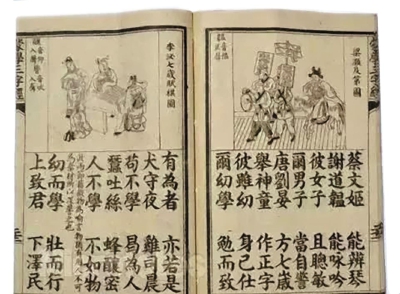 梁灝及第圖
蔡文姬 能辨琴
謝道韞 能詠吟
彼女子 且聰敏
爾男子 當自警
唐劉晏 方七歲
舉神童 作正字
彼雖幼 身已仕
爾幼學 勉而致
李泌七歲賦棋圖
有為者 亦若是
犬守夜 雞司晨
苟不學 曷為人
蠶吐絲 蜂釀蜜
人不學 不如物
幼而學 壯而行
上致君 下澤民
學三字經